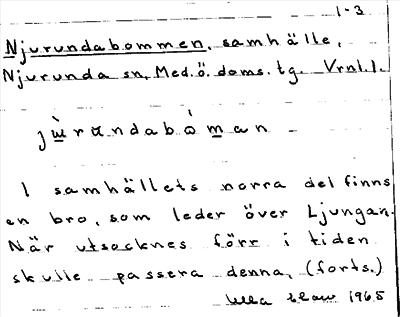 1-3
Njurundabommen, samhälle,
Njurunda sn, Med. ö. doms. tg. Vrnl. l.
I samhällets norra del finns
en bro, som leder över Ljungan.
När utsocknes förr i tiden
skulle passera denna, (forts.)
1965